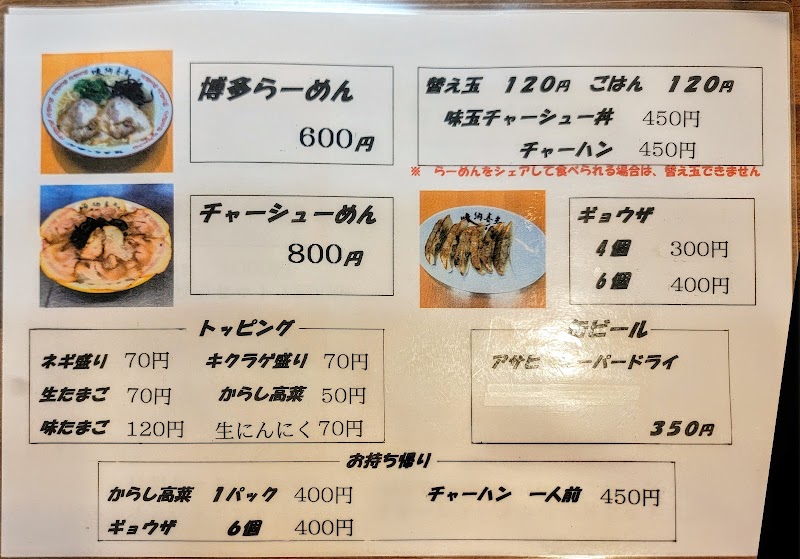 博多らーめん
600円
チャーシューめん
800円
替え玉 120円 ごはん 120円
味玉チャーシュー丼 450円
チャーハン 450円
※ らーめんをシェアして食べられる場合は、替え玉できません
ギョウザ
4個 300円
6個 400円
トッピング
ネギ盛り 70円 キクラゲ盛り 70円
生たまご 70円 からし高菜 50円
味たまご 120円 生にんにく 70円
缶ビール
アサヒスーパードライ
350円
お持ち帰り
からし高菜 1パック 400円 チャーハン 一人前 450円
ギョウザ 6個 400円